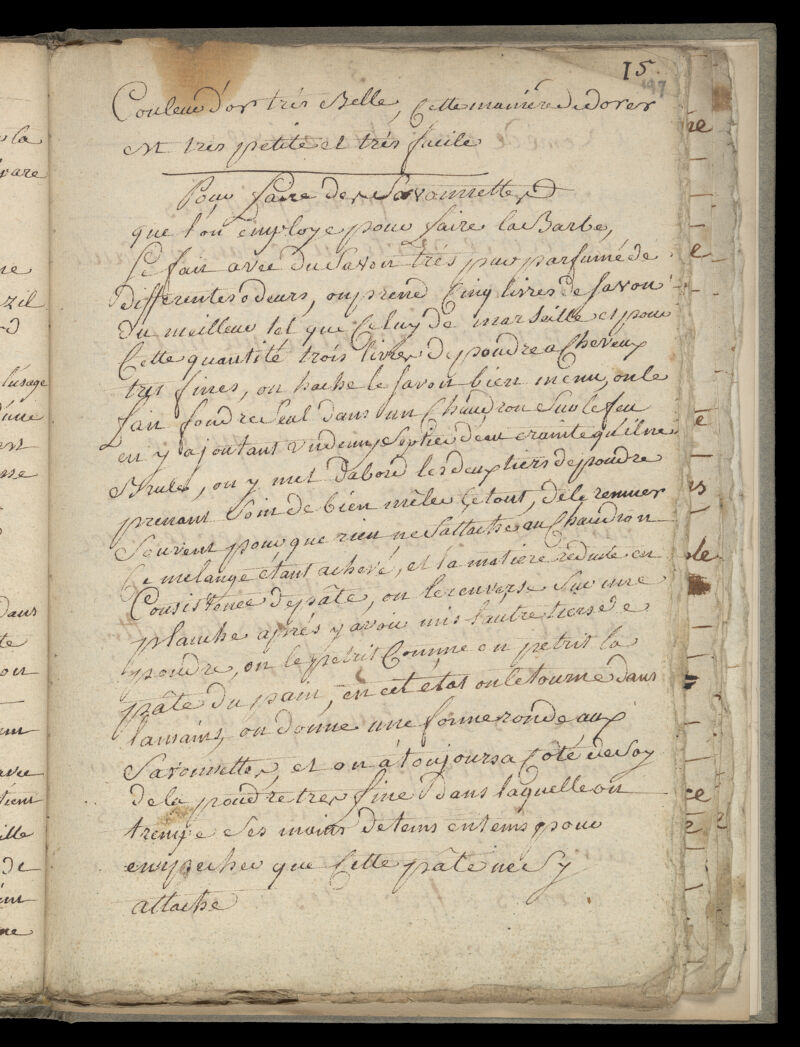 15.
197
Couleur d'or trés Belle, Cette maniére de dorer
est trés petite et trés facile
Pour faire des Savonnettes
que l'on employe pour faire la Barbe,
Se fait avec du Savon trés pur parfumé de
differentes odeurs, on prend Cinq livres de Savon
du meilleur tel que Celuy de marseille et pour
Cette quantité trois livres de poudre a Cheveux
tres fines, on hache le Savon bien menu, on le
fait fondre Seul dans un Chaudron Sur le feu
en y ajoutant un demy Septier d'eau crainte qu'il ne
Brule, on y met d'abord les deux tiers de poudre
prenant Soin de bien mêler le tout, de le remuer
Souvent pour que rien ne S'attache au Chaudron
Le mélange étant achevé, et la matiere réduite en
Consistence de pâte, on le renverse Sur une
planche aprés y avoir mis l'autre tiers de
poudre, on le petrit Comme on petrit la
pâte du pain, en cet état on le tourne dans
la mains, on donne une forme ronde aux
Savonnettes, et on à toujours a Coté de Soy
de la poudre tres fine dans laquelle on
trempe Ses mains de tems en tems pour
empecher que Cette pâte ne S'y
attache